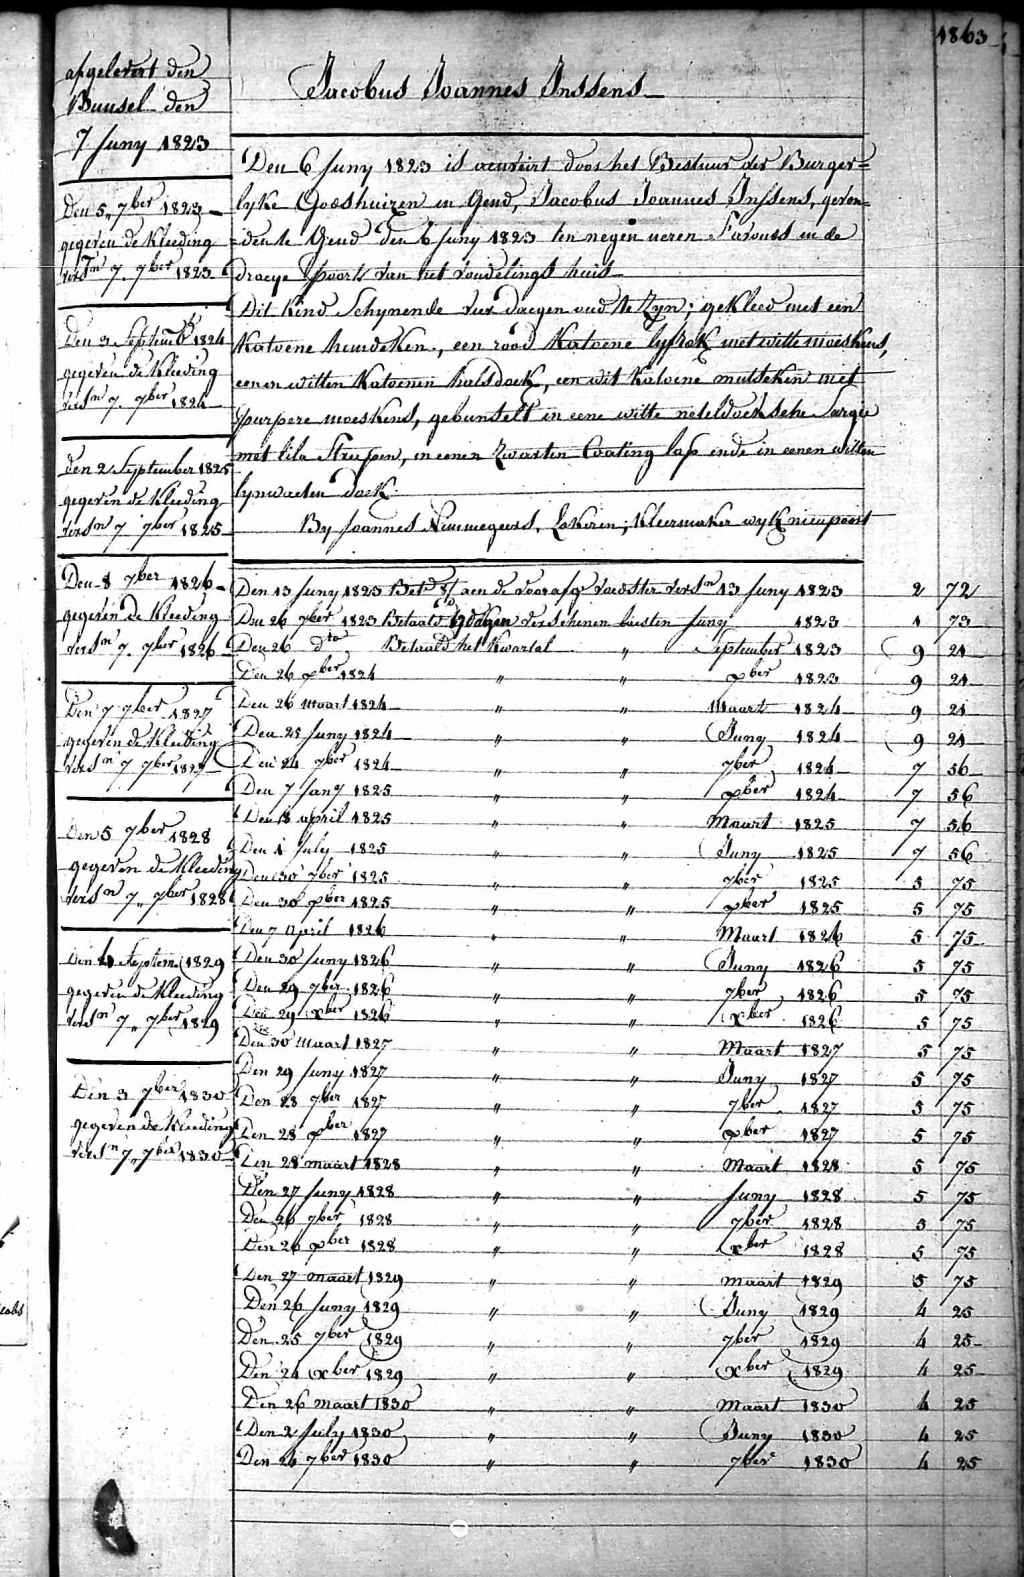 1863
afgelevert den
Buusel den
7 Juny 1823
Den 5 7ber 1823
gegeven de Kleeding
versn 7. 7ber 1823
Den 3 Septemb 1824
gegeven de Kleeding
versn 7. 7ber 1824
Den 2 September 1825
gegeven de Kleeding
versn 7 7ber 1825
Den 8 7ber 1826
gegeven De Kleeding
versn 7. 7ber 1826
Den 7 7ber 1827
gegeven de Kleeding
versn 7 7ber 1827
Den 5 7ber 1828
gegeven de Kleeding
versn 7,, 7ber 1828
Den 4 Septem. 1829
gegeven de Kleeding
versn 7,, 7ber 1829
Den 3 7ber 1830
gegeven de Kleeding
versn 7,, 7ber 1830
Jacobus Joannes Inssens
Den 6 Juny 1823 is door het Bestuur der Burger=
lyke Godshuizen in Gend, Jacobus Joannes Inssens, gevon=
=den te Gend den 6 Juny 1823 ten negen ueren S'avonds in de
draeye Poorte van het vondelings huis
Dit Kind Schynende vier daegen oud te Zyn; gekleed met een
Katoene hemdeken, een rood Katoene lyfrok met witte moeskens,
eenen witten Katoenen halsdoek, een wit Katoene mutseken met
purpere moeskens, gebunselt in eene witte neteldoeksche Sargie
met lila Streepen, in eenen Zwarten Coating lap ende in eenen witten
lynwaeten doek.
By Joannes Nimmegeers, Lokeren, Kleermaker wyk nieupoort
Den 13 Juny 1823 Betd aen de voorafge Voedster versn 13 Juny 1823 2 72
Den 26 7ber 1823 Betaald dagen verschenen laesten Juny 1823 1 73
Den 26 dto Betaald het Kwartal " September 1823 9 21
Den 26 xber 1824 " " xber 1823 9 21
Den 26 Maart 1824 " " Maart 1824 9 21
Den 25 Juny 1824 " " Juny 1824 9 21
Den 24 7ber 1824 " " 7ber 1824 7 56
Den 7 Jany 1825 " " xber 1824 7 56
Den 8 april 1825 " " Maart 1825 7 56
Den 1 July 1825 " " Juny 1825 7 56
Den 30 7ber 1825 " " 7ber 1825 5 75
Den 30 xber 1825 " " xber 1825 5 75
Den 7 April 1826 " " Maart 1826 5 75
Den 30 Juny 1826 " " Juny 1826 5 75
Den 29 7ber 1826 " " 7ber 1826 5 75
Den 29 xber 1826 " " xber 1826 5 75
Den 30 Maart 1827 " " Maart 1827 5 75
Den 29 Juny 1827 " " Juny 1827 5 75
Den 28 7ber 1827 " " 7ber 1827 5 75
Den 28 xber 1827 " " xber 1827 5 75
Den 28 maart 1828 " " Maart 1828 5 75
Den 27 Juny 1828 " " Juny 1828 5 75
Den 26 7ber 1828 " " 7ber 1828 5 75
Den 26 xber 1828 " " xber 1828 5 75
Den 27 maart 1829 " " maart 1829 5 75
Den 26 Juny 1829 " " Juny 1829 4 25
Den 25 7ber 1829 " " 7ber 1829 4 25
Den 24 xber 1829 " " xber 1829 4 25
Den 26 maart 1830 " " Maart 1830 4 25
Den 2 July 1830 " " Juny 1830 4 25
Den 24 7ber 1830 " " 7ber 1830 4 25